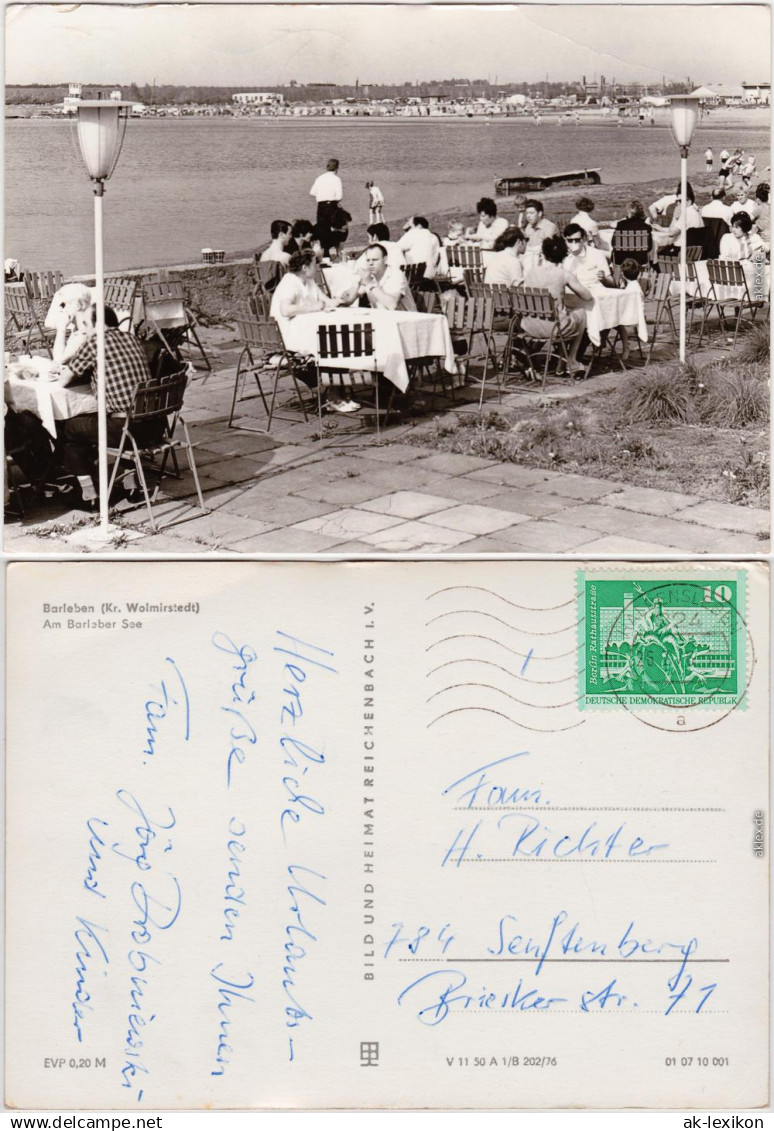 Barleben (Kr. Wolmirstedt)
Am Barleber See
Herzliche Urlaubs-
grüße senden Ihnen
Fam. Jörg Drobniewski
und Kinder
BILD UND HEIMAT REICHENBACH I. V.
10
Berlin, Rathausstraße
DEUTSCHE DEMOKRATISCHE REPUBLIK
24
a
Fam.
H. Richter
784 Senftenberg
Briesker str. 71
EVP 0,20 M
V 11 50 A 1/B 202/76
01 07 10 001
ak-lexikon.de
aklex.de
www.delcampe.net
ak-lexikon